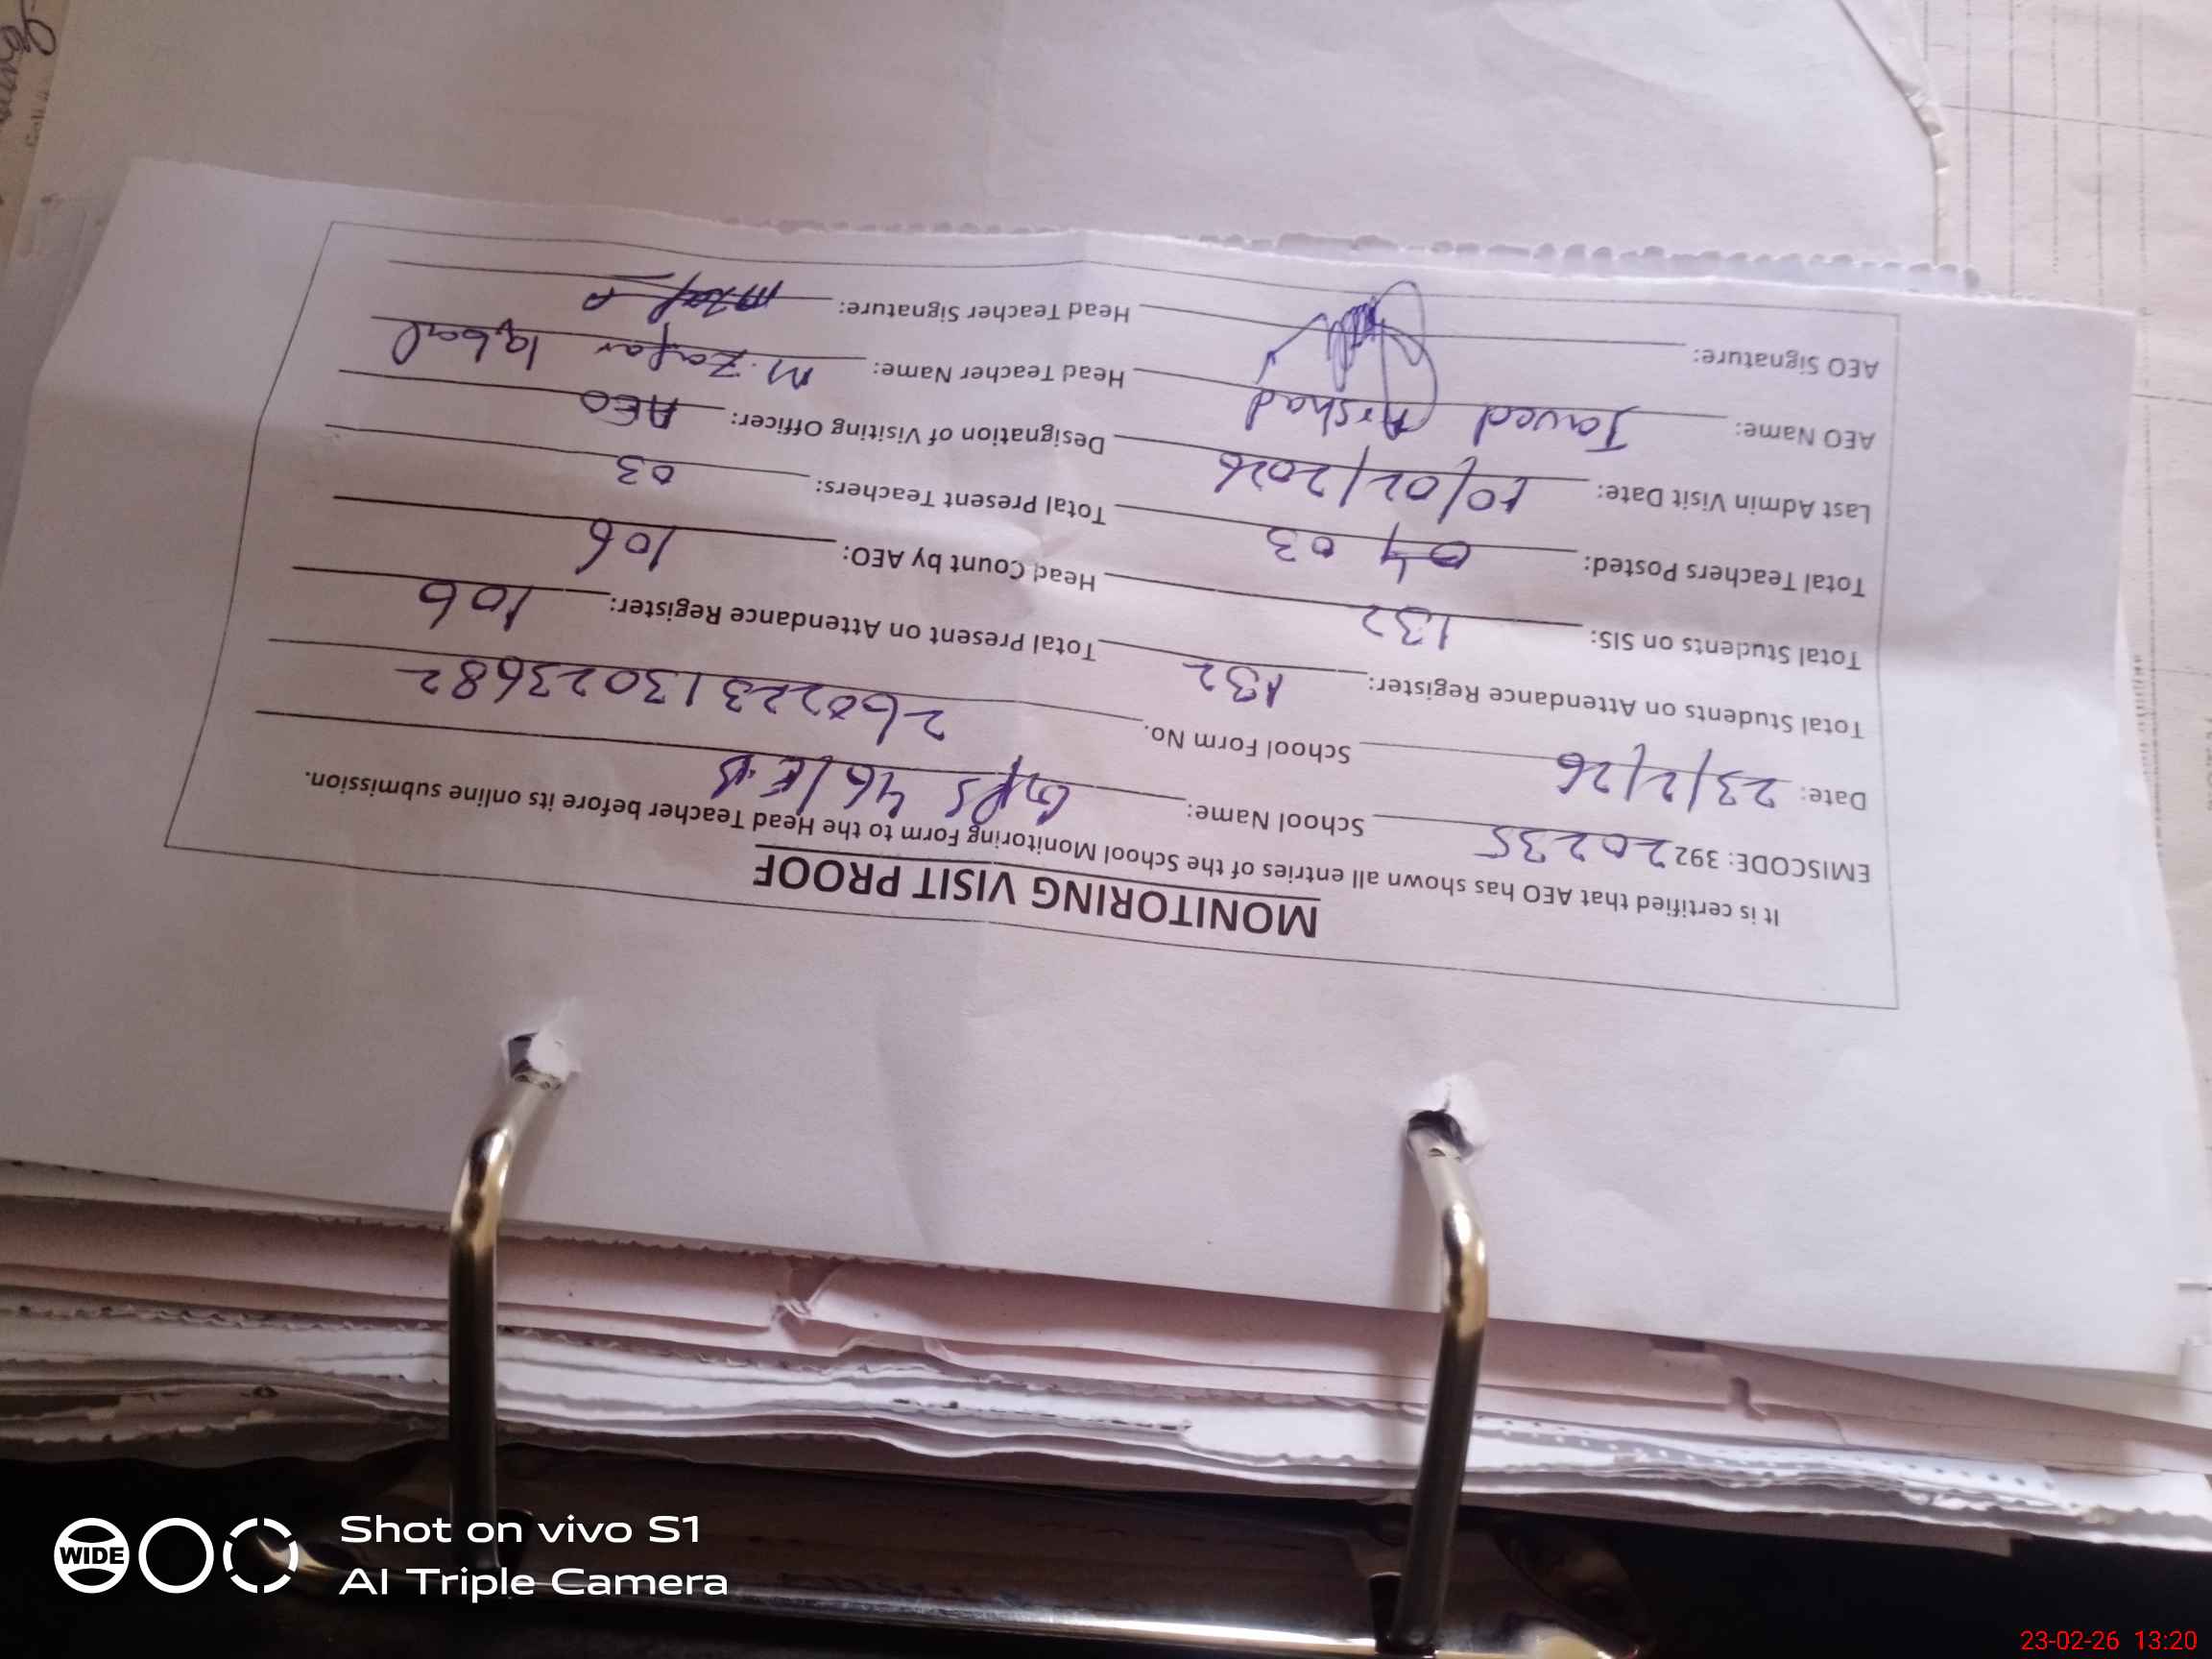 MONITORING VISIT PROOF
It is certified that AEO has shown all entries of the School Monitoring Form to the Head Teacher before its online submission.
EMISCODE: 39220235 School Name: GPS 46/E.B
Date: 23/2/26 School Form No. 26022313023682
Total Students on Attendance Register: 132 Total Present on Attendance Register: 106
Total Students on SIS: 132 Head Count by AEO: 106
Total Teachers Posted: 04 03 Total Present Teachers: 03
Last Admin Visit Date: 10/02/2026 Designation of Visiting Officer: AEO
AEO Name: Javed Arshad Head Teacher Name: M. Zafar Iqbal
AEO Signature: Head Teacher Signature:
WIDE
Shot on vivo S1
AI Triple Camera
23-02-26 13:20